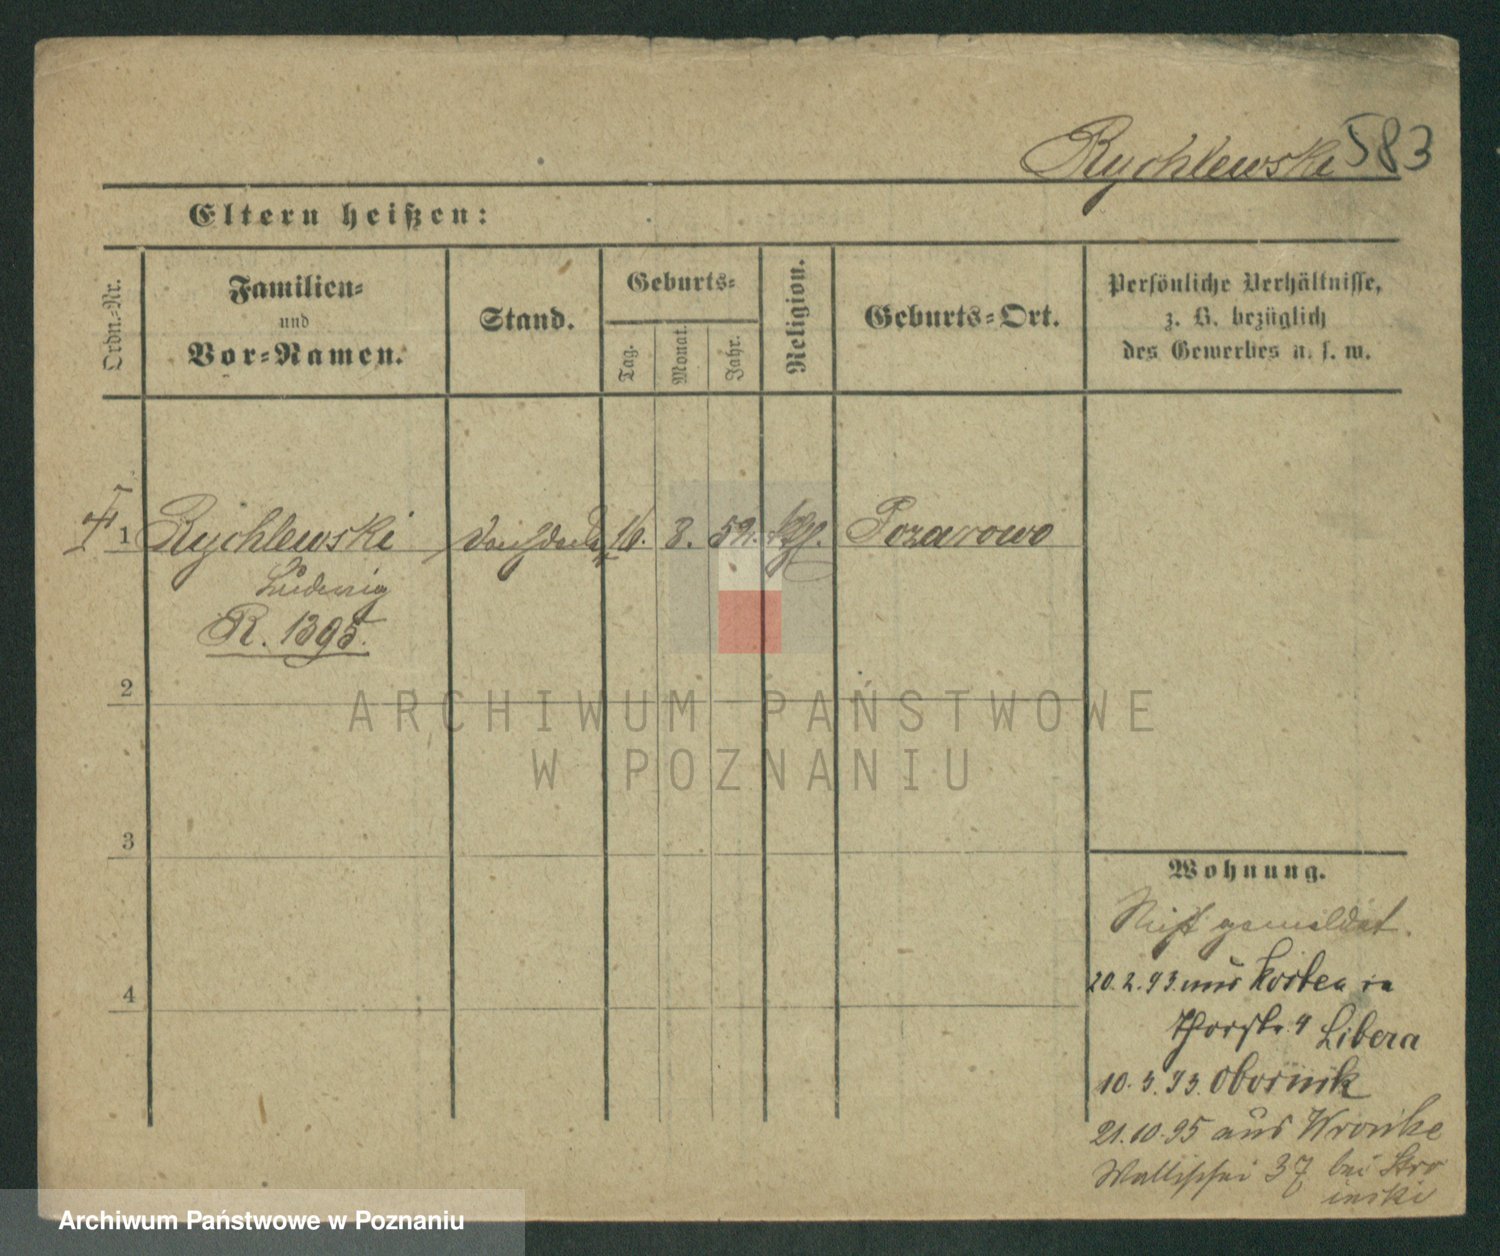 Rychlewski 583
Eltern heißen:
Ordn.-Nr.
Familien-
und
Vor-Namen.
Stand.
Geburts-
Tag.
Monat.
Jahr.
Religion.
Geburts-Ort.
Persönliche Verhältnisse,
z. B. bezüglich
des Gewerbes u. s. w.
1 Rychlewski 16. 8. 59. Pozarowo
Ludwig
R. 1395.
2
3
4
Wohnung.
gemeldet.
20.2.93. aus Kosten in
4 Libera
10.3.93. Obornik
21.10.95 aus Wronke
Wallischei 37 bei Stro
inski
ARCHIWUM PAŃSTWOWE
W POZNANIU
Archiwum Państwowe w Poznaniu